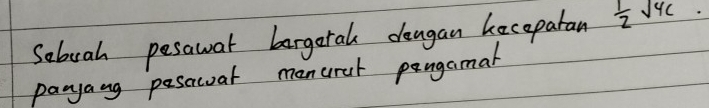 Sebuah pesawat bergerak dengan kecepatan ½ √4c.
panjang pesawat menurut pengamat